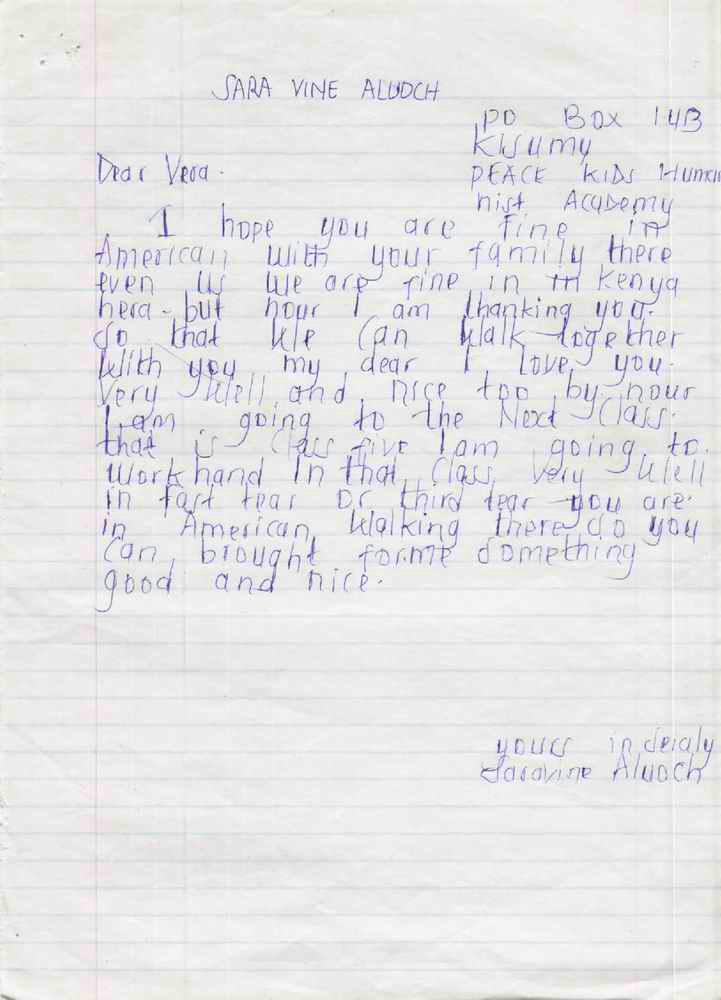 SARA VINE ALUOCH
PO Box 14B
Kisumy
Dear Vera.
PEACE KIDS Humani
nist Academy
I hope you are fine in
American with your family there
even us we are fine in in Kenya
hera. but hour I am thanking you.
so that we can walk together
with you my dear I love you.
Very Well and nice too by hour
I am going to the Next Class.
that is Class five I am going to.
Work hand In that Class Very Well
in fast tear or third tear you are.
in American Walking there so you
Can brought for me something
good and nice.
yours
Saravine Aluoch